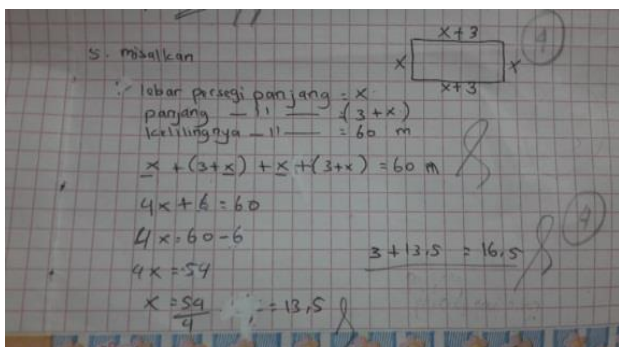 5. misalkan
x+3
x
x
x+3
4
lebar persegi panjang = x
panjang — 11 — = (3+x)
kelilingnya — 11 — = 60 m
x + (3+x) + x + (3+x) = 60 m
4x + 6 = 60
4x = 60 - 6
4x = 54
x = 54/4 = 13,5
3 + 13,5 = 16,5
4